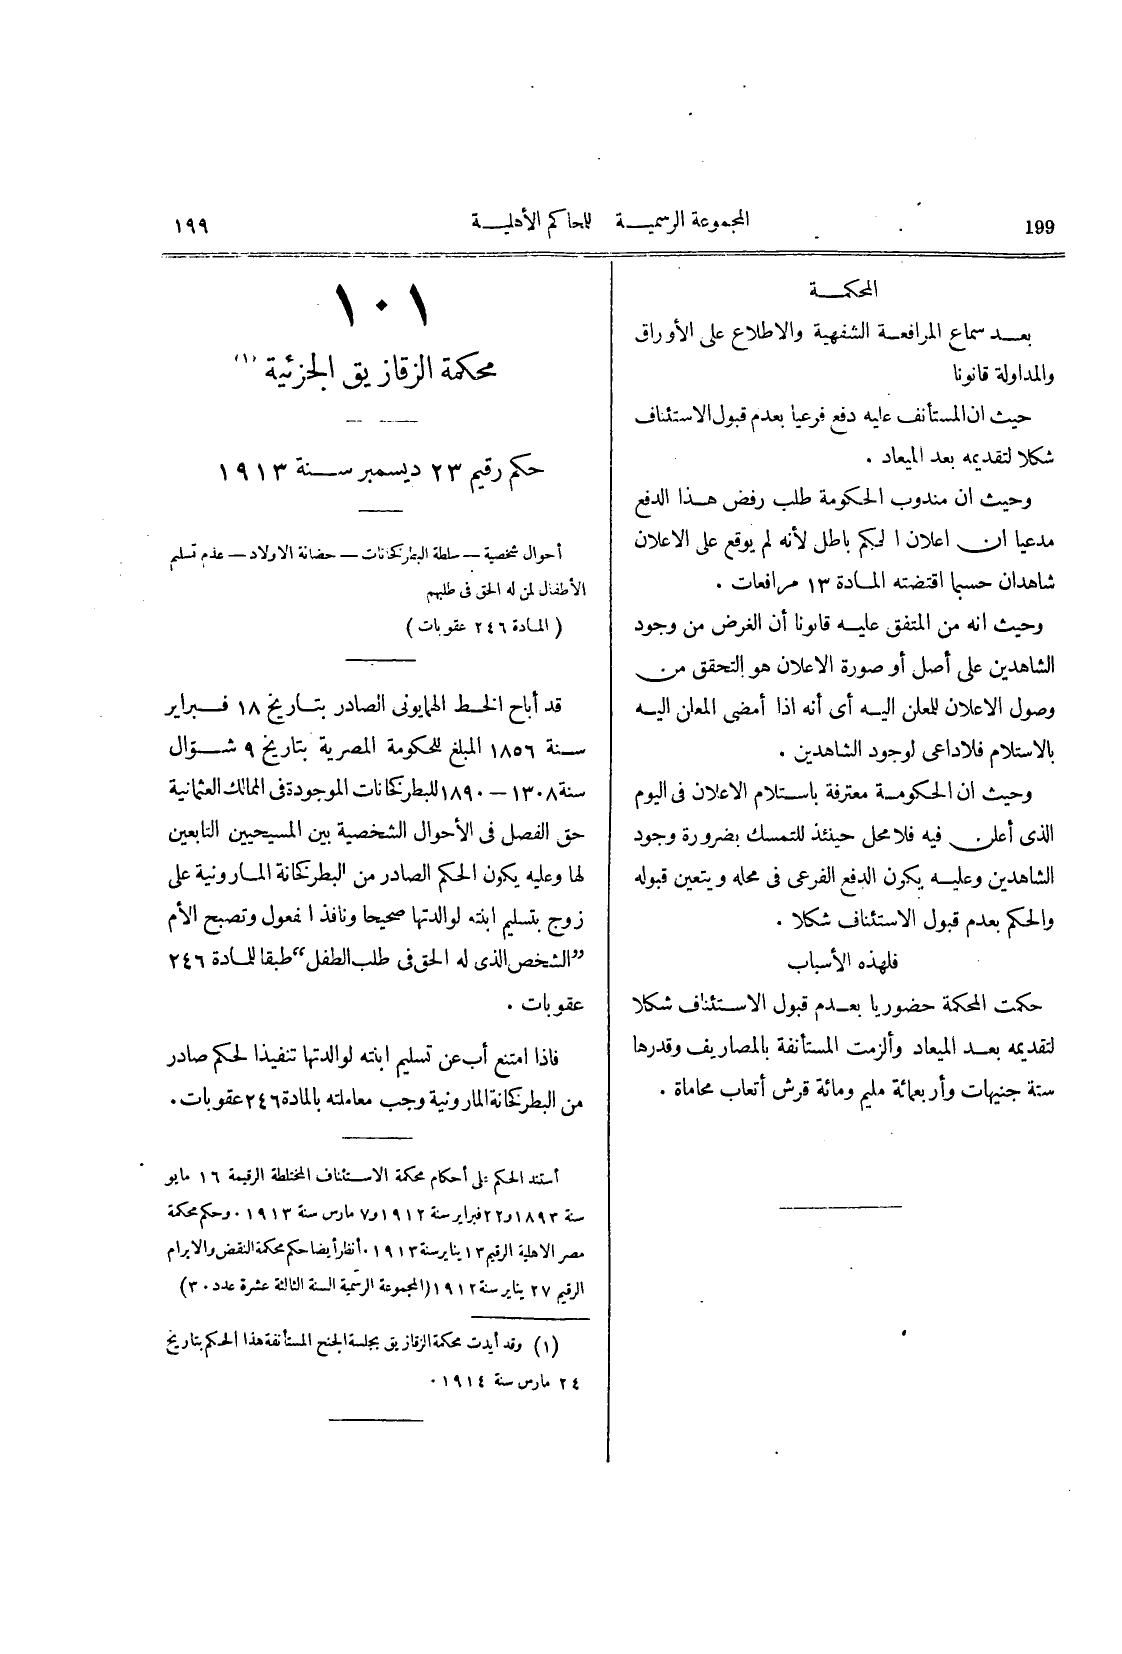 199
المجموعة الرسمية للمحاكم الأهلية
١٩٩
المحكمة
بعد سماع المرافعة الشفهية والاطلاع على الأوراق
والمداولة قانونا
حيث ان المستأنف عليه دفع فرعيا بعدم قبول الاستئناف
شكلا لتقديمه بعد الميعاد .
وحيث ان مندوب الحكومة طلب رفض هذا الدفع
مدعيا ان اعلان الحكم باطل لأنه لم يوقع على الاعلان
شاهدان حسبما اقتضته المادة ١٣ مرافعات .
وحيث انه من المتفق عليه قانونا أن الغرض من وجود
الشاهدين على أصل أو صورة الاعلان هو التحقق من
وصول الاعلان للمعلن اليه أى أنه اذا أمضى المعلن اليه
بالاستلام فلاداعى لوجود الشاهدين .
وحيث ان الحكومة معترفة باستلام الاعلان فى اليوم
الذى أعلن فيه فلا محل حينئذ للتمسك بضرورة وجود
الشاهدين وعليه يكون الدفع الفرعى فى محله ويتعين قبوله
والحكم بعدم قبول الاستئناف شكلا .
فلهذه الأسباب
حكمت المحكمة حضوريا بعدم قبول الاستئناف شكلا
لتقديمه بعد الميعاد وألزمت المستأنفة بالمصاريف وقدرها
ستة جنيهات وأربعمائة مليم ومائة قرش أتعاب محاماة .
١٠١
محكمة الزقازيق الجزئية (١)
حكم رقيم ٢٣ ديسمبر سنة ١٩١٣
أحوال شخصية — سلطة البطركخانات — حضانة الاولاد — عدم تسليم
الأطفال لمن له الحق فى طلبهم
( المادة ٢٤٦ عقوبات )
قد أباح الخط الهمايونى الصادر بتاريخ ١٨ فبراير
سنة ١٨٥٦ المبلغ للحكومة المصرية بتاريخ ٩ شوال
سنة ١٣٠٨ — ١٨٩٠ للبطركخانات الموجودة فى الممالك العثمانية
حق الفصل فى الأحوال الشخصية بين المسيحيين التابعين
لها وعليه يكون الحكم الصادر من البطركخانة المارونية على
زوج بتسليم ابنته لوالدتها صحيحا ونافذ المفعول وتصبح الأم
”الشخص الذى له الحق فى طلب الطفل“ طبقا للمادة ٢٤٦
عقوبات .
فاذا امتنع أب عن تسليم ابنته لوالدتها تنفيذا لحكم صادر
من البطركخانة المارونية وجب معاملته بالمادة ٢٤٦ عقوبات .
أستند الحكم على أحكام محكمة الاستئناف المختلطة الرقيمة ١٦ مايو
سنة ١٨٩٣ و٢٢ فبراير سنة ١٩١٢ و٧ مارس سنة ١٩١٣ . وحكم محكمة
مصر الاهلية الرقيم ١٣ يناير سنة ١٩١٣ . أنظر أيضا حكم محكمة النقض والابرام
الرقيم ٢٧ يناير سنة ١٩١٢ (المجموعة الرسمية السنة الثالثة عشرة عدد ٣٠)
(١) وقد أيدت محكمة الزقازيق بجلسة الجنح المستأنفة هذا الحكم بتاريخ
٢٤ مارس سنة ١٩١٤ .